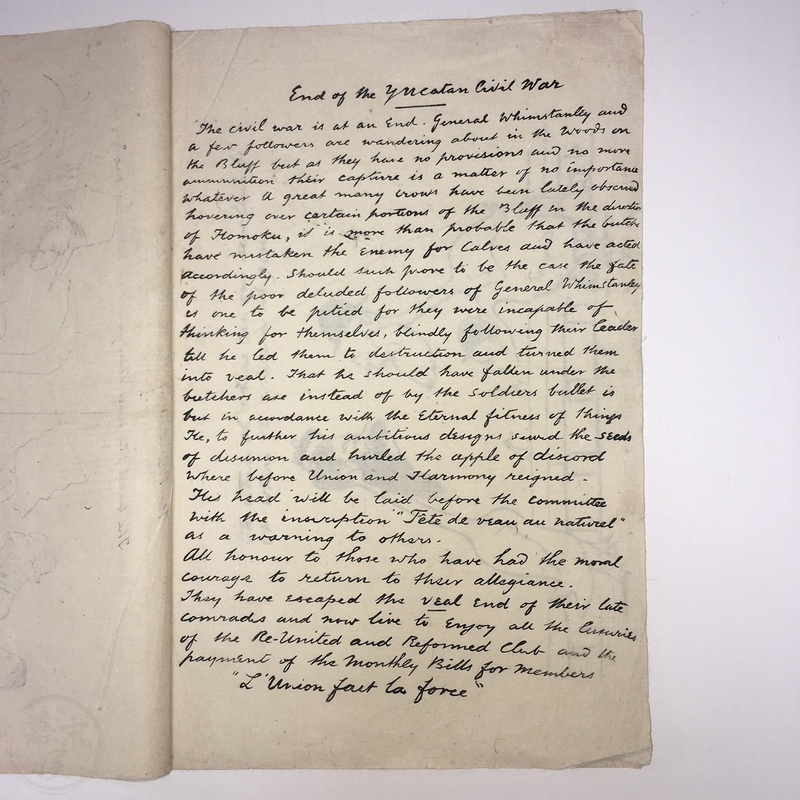 End of the Yucatan Civil War
The civil war is at an End. General Whimstanley and
a few followers are wandering about in the Woods on
the Bluff but as they have no provisions and no more
ammunition their capture is a matter of no importance
whatever A great many crows have been lately observed
hovering over certain portions of the Bluff in the direction
of Homoku, it is more than probable that the butchers
have mistaken the Enemy for Calves and have acted
accordingly. Should such prove to be the case the fate
of the poor deluded followers of General Whimstanley
is one to be pitied for they were incapable of
thinking for themselves, blindly following their leader
till he led them to destruction and turned them
into veal. That he should have fallen under the
butchers axe instead of by the soldiers bullet is
but in accordance with the Eternal fitness of things
He, to further his ambitious designs sowed the seeds
of disunion and hurled the apple of discord
where before Union and Harmony reigned.
His head will be laid before the committee
with the inscription "Tête de veau au naturel"
as a warning to others.
All honour to those who have had the moral
courage to return to their allegiance.
They have escaped the veal End of their late
comrades and now live to Enjoy all the luxuries
of the Re-United and Reformed Club and the
payment of the Monthly Bills for Members
"L'Union fait la force"